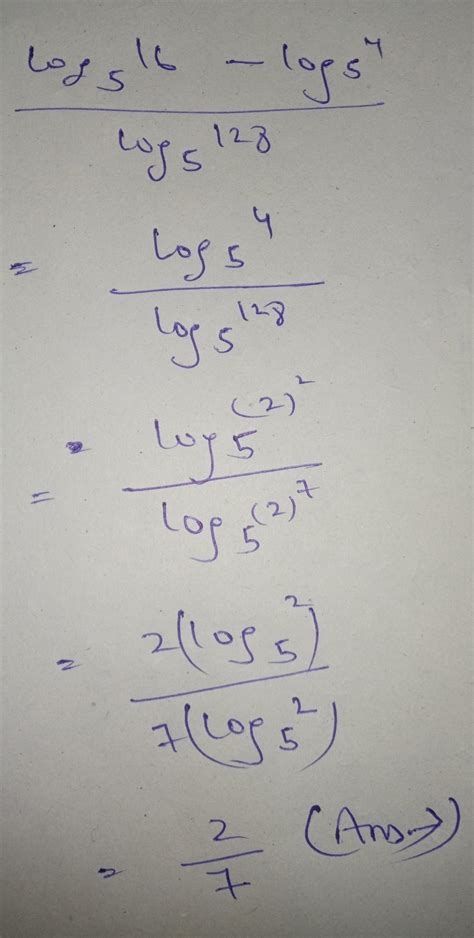 log₅16 – log₅4
log₅128
= log₅4
log₅128
= log₅(2)²
log₅(2)⁷
= 2(log₅2)
7(log₅2)
= 2/7 (Ans→)